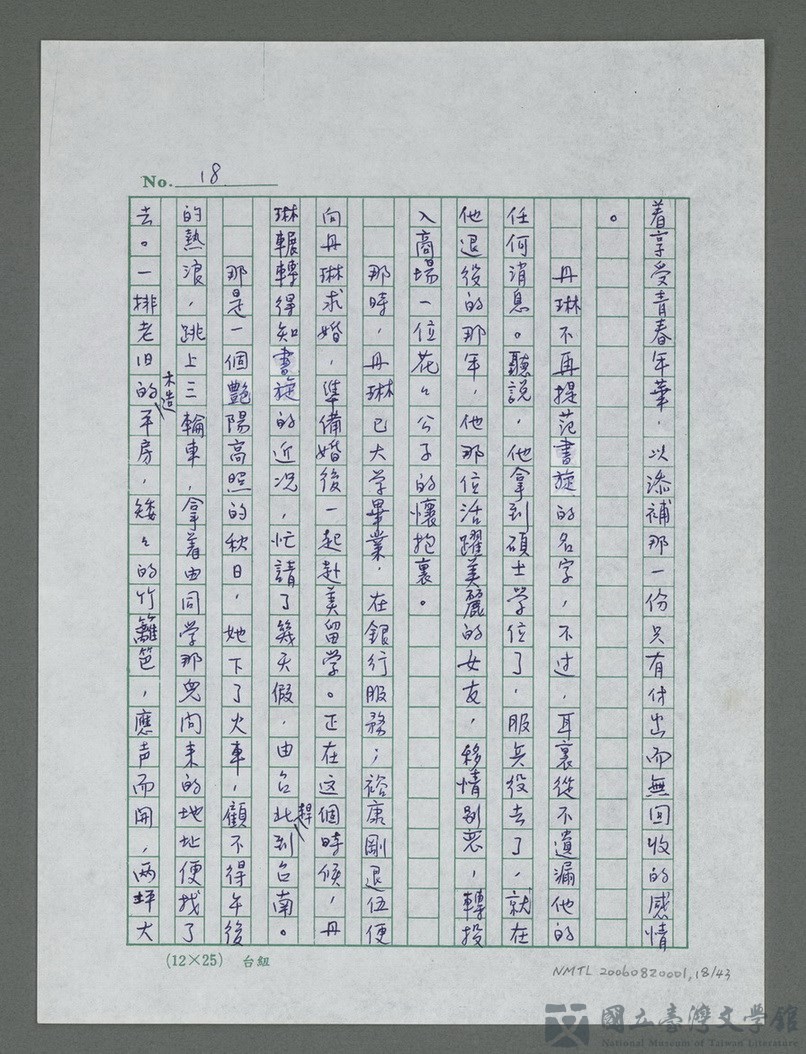 No. 18
着享受青春年華，以添補那一份只有付出而無回收的感情
。
丹琳不再提范書旋的名字，不过，耳裏從不遺漏他的
任何消息。聽說，他拿到碩士学位了，服兵役去了，就在
他退役的那年，他那位活躍美麗的女友，移情別恋，轉投
入商場一位花々公子的懷抱裏。
那時，丹琳已大学畢業，在銀行服務；裕康剛退伍便
向丹琳求婚，準備婚後一起赴美留学。正在这個時候，丹
琳輾轉得知書旋的近況，忙請了幾天假，由台北趕到台南。
那是一個艷陽高照的秋日，她下了火車，顧不得午後
的熱浪，跳上三輪車，拿着由同学那兒问来的地址便找了
去。一排老旧的木造平房，矮々的竹籬笆，應声而開，两坪大
(12×25) 台組
NMTL 20060820001, 18/43
國立臺灣文學館
National Museum of Taiwan Literature